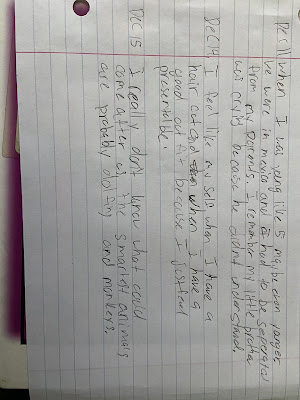 Dec 11 When I was yeng like 5 maybe even yanger
We were in movie and I have to be seperated
from my parents. I remember my little brother
will cried because he didnt understand.
Dec 14 I feel like my self when I have a
hair cut and when I have a
good out fit because I just feel
presentable.
Dec 15 I really don't know what could
come after us the smartest animals
are probably dolfins and monkeys.